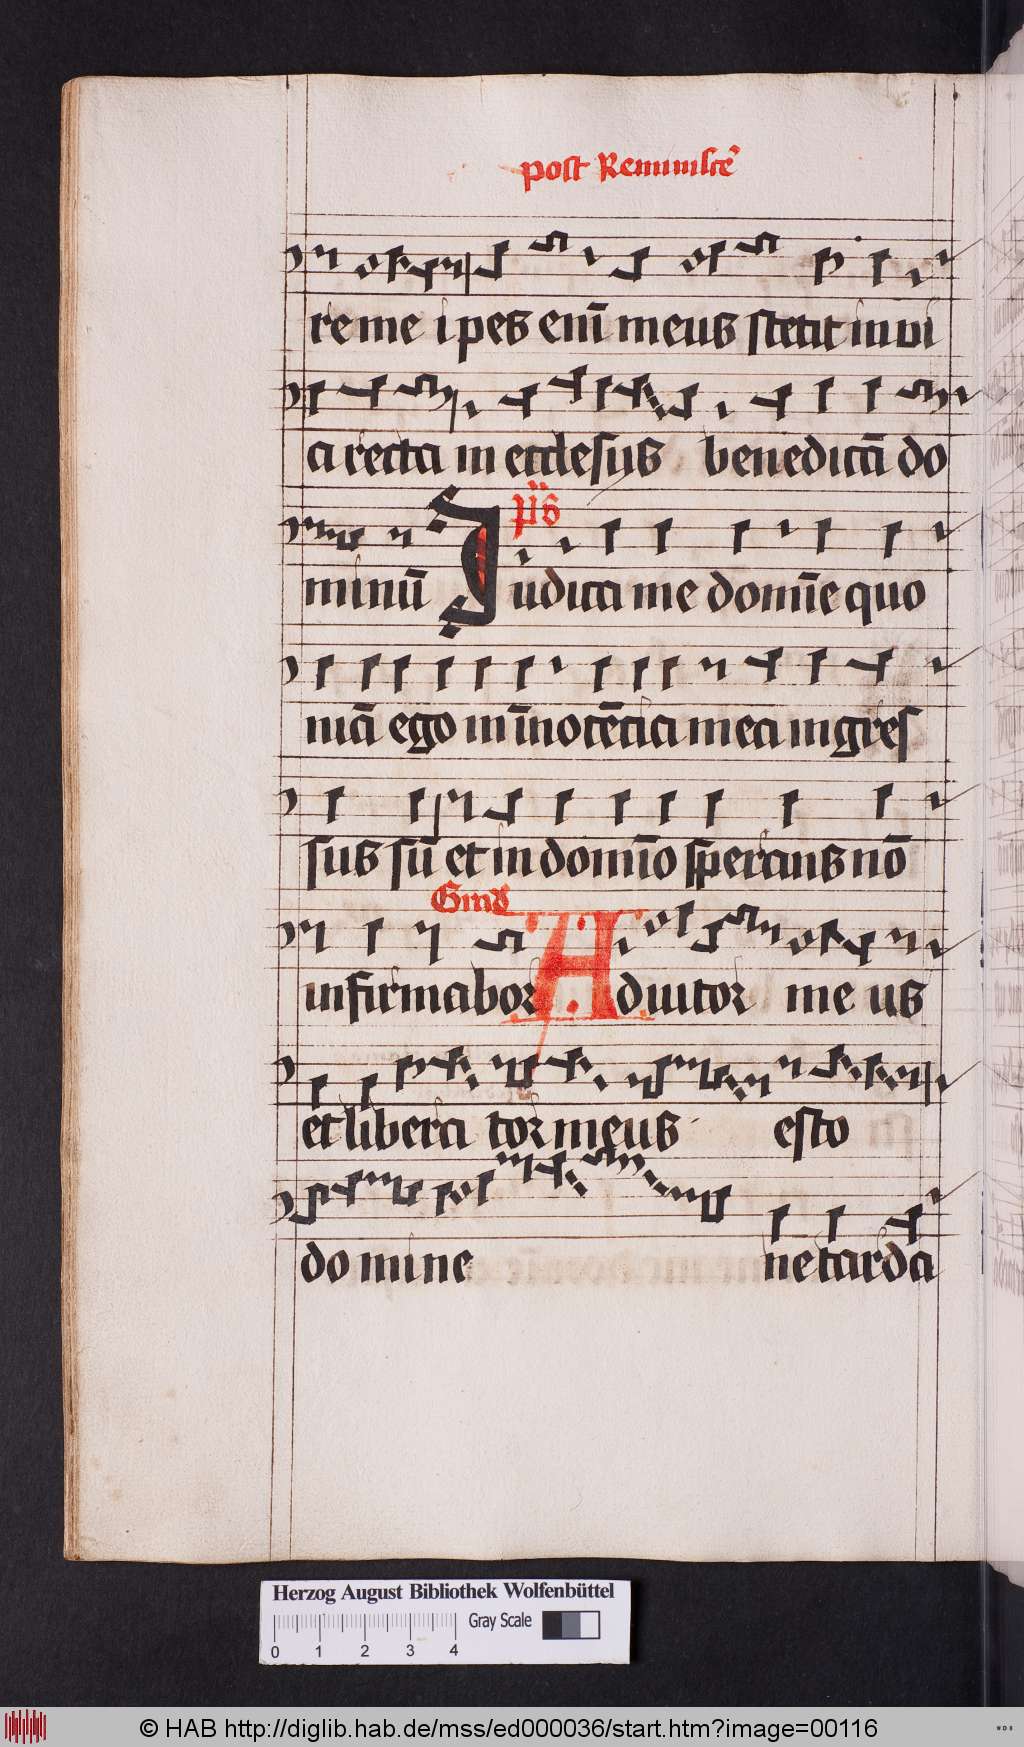 post Reminiscē
re me i pes enī meus stetit in vi
a recta in ecclesijs benedicā do
minū p̄s Judica me domīe quo
niā ego in īnocētia mea ingres
sus sū et in domīo sperans nō
infirmabor Grad Adiutor me us
et libera tor meus esto
do mine ne tarda
Herzog August Bibliothek Wolfenbüttel
0 1 2 3 4 Gray Scale
© HAB http://diglib.hab.de/mss/ed000036/start.htm?image=00116